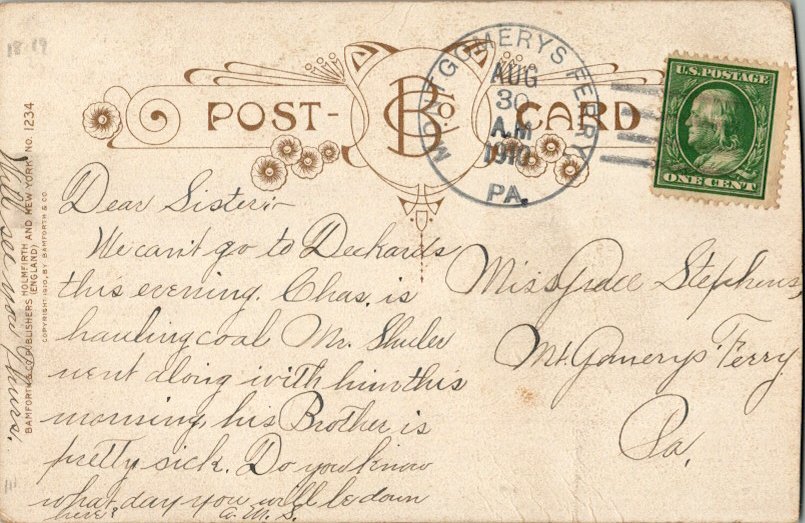 18 19
POST-CARD
MONTGOMERYS FERRY
AUG
30
A.M
1910
PA.
U.S. POSTAGE
ONE CENT
Dear Sister:-
We can't go to Deckards
this evening. Chas. is
hauling coal Mr. Shuler
went along with him this
morning, his Brother is
pretty sick. Do you know
what day you will be down
here? A. M. S.
Will see you thurs.
Miss Grace Stephens,
Mt. Gomerys Ferry
Pa.
BAMFORTH & CO PUBLISHERS HOLMFIRTH AND NEW YORK NO. 1234
(ENGLAND)
COPYRIGHT 1910, BY BAMFORTH & CO.